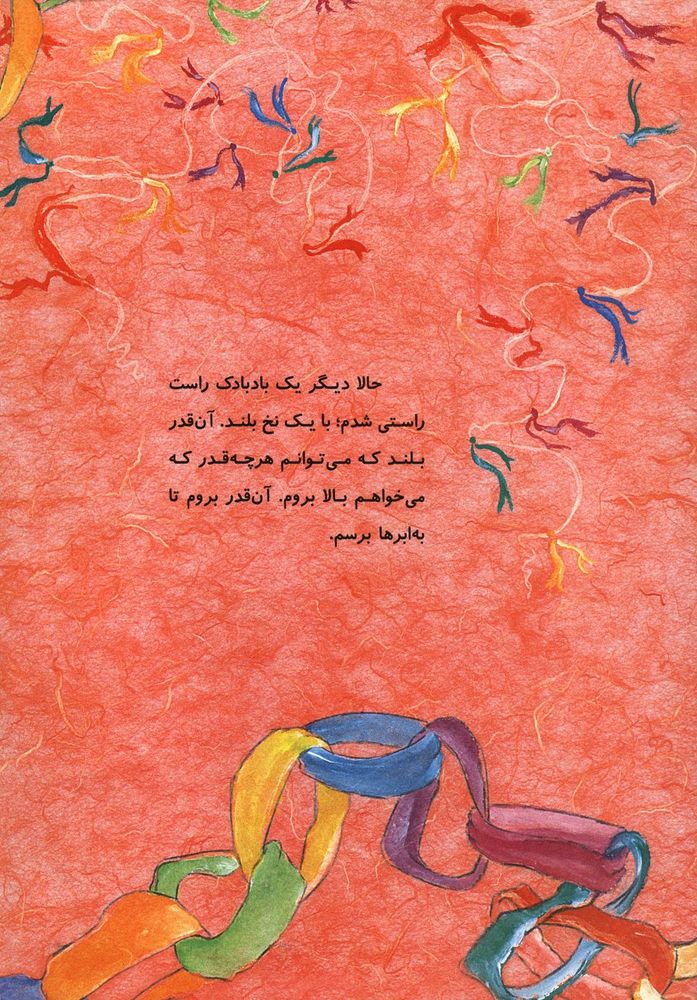 حالا دیگر یک بادبادک راست
راستی شدم؛ با یک نخ بلند. آن‌قدر
بلند که می‌توانم هرچه‌قدر که
می‌خواهم بالا بروم. آن‌قدر بروم تا
به‌ابرها برسم.